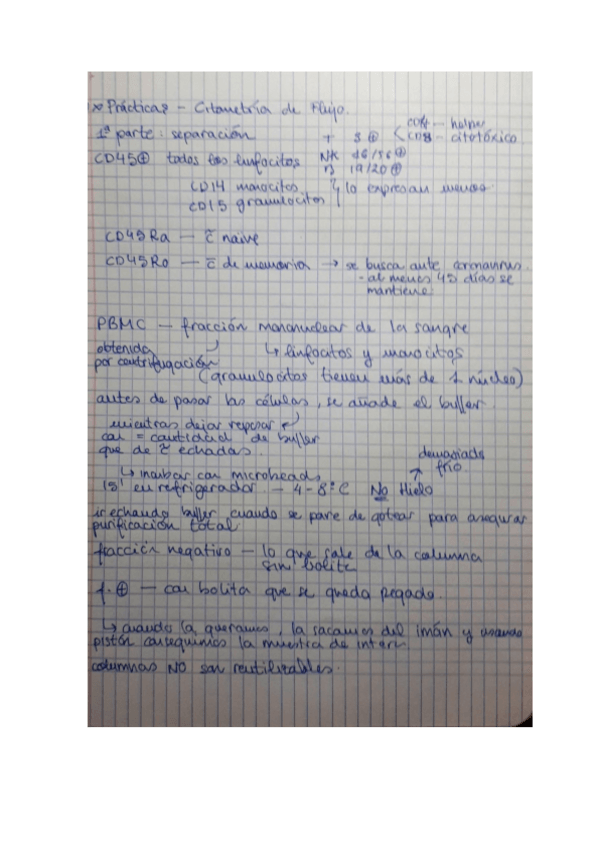 Prácticas - Citometría de Flujo.
CD4 - helper
1ª parte: separación T 3⊕ < CD8 - citotóxico
CD45⊕ todos los linfocitos NK 16/56⊕
B 19/20⊕
CD14 monocitos
CD15 granulocitos } lo expresan menos
CD45Ra — c̄ naive
CD45Ro — c̄ de memoria → se busca ante coronavirus.
- al menos 45 días se
mantiene.
PBMC — fracción mononuclear de la sangre
obtenida ↳ linfocitos y monocitos
por centrifugación (granulocitos tienen más de 1 núcleo)
antes de pasar las células, se añade el buffer.
mientras dejar reposar
con = cantidad de buffer
que de c̄ echadas.
demasiado
frío
↳ incubar con microbeads
15' en refrigerador - 4-8°C No Hielo
ir echando buffer cuando se pare de gotear para asegurar
purificación total
fracción negativo — lo que sale de la columna
sin bolita
f.⊕ — con bolita que se queda pegado.
↳ cuando la queramos, la sacamos del imán y usando
pistón conseguimos la muestra de interés
columnas NO son reutilizables.